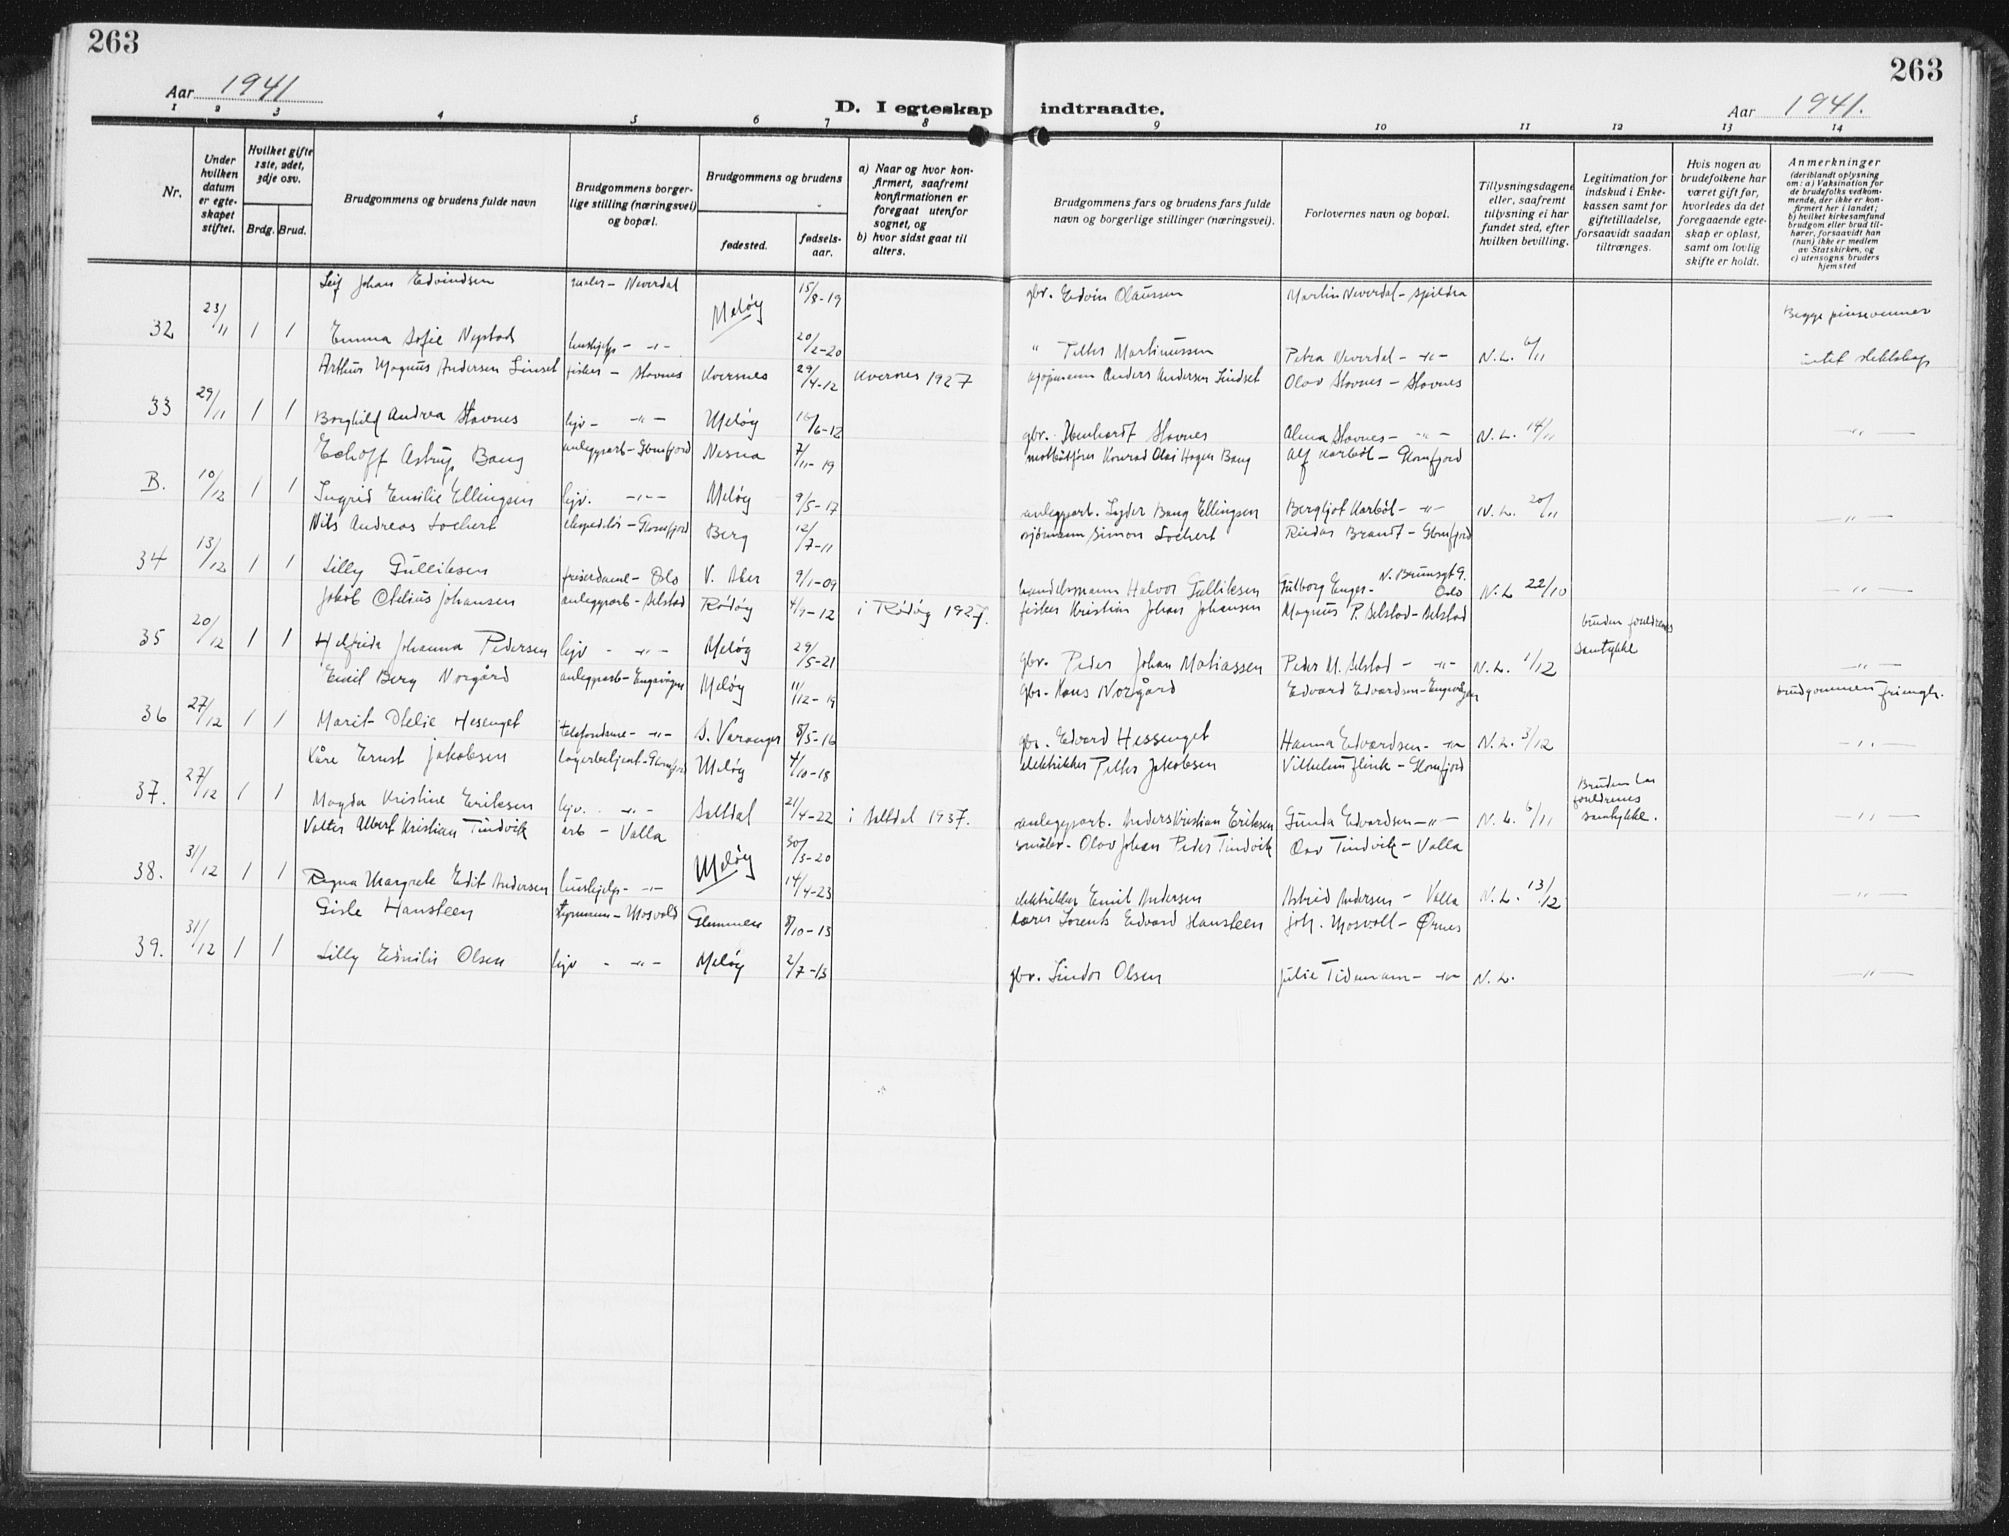 263
263
Aar 1941
Aar 1941.
D. I egteskap indtraadte.
1 2 3 4 5 6 7 8 9 10 11 12 13 14
Nr.
Under hvilken datum er egteskapet stiftet.
Hvilket gifte 1ste, 2det, 3dje osv.
Brdg. Brud.
Brudgommens og brudens fulde navn
Brudgommens borgerlige stilling (næringsvei) og bopæl.
Brudgommens og brudens
fødested.
fødselsaar.
a) Naar og hvor konfirmert, saafremt konfirmationen er foregaat utenfor sognet, og
b) hvor sidst gaat til alters.
Brudgommens fars og brudens fars fulde navn og borgerlige stillinger (næringsvei).
Forlovernes navn og bopæl.
Tillysningsdagene eller, saafremt tillysning ei har fundet sted, efter hvilken bevilling.
Legitimation for indskud i Enkekassen samt for giftetilladelse, forsaavidt saadan tiltrænges.
Hvis nogen av brudefolkene har været gift før, hvorledes da det foregaaende egteskap er opløst, samt om lovlig skifte er holdt.
Anmerkninger (deriblandt oplysning om: a) Vaksination for de brudefolks vedkommende, der ikke er konfirmert her i landet; b) hvilket kirkesamfund brudgom eller brud tilhører, forsaavidt han (hun) ikke er medlem av Statskirken, og c) utensogns bruders hjemsted
Leif Johan Edvindsen maler - Neverdal 15/8-19 gbr. Edvin Olaussen Martin Neverdal - Spildra
32 23/11 1 1 Meløy Begge pinsevenner
Emma Sofie Nystad hushjelp - -"- 20/2-20 " Petter Martinussen Petra Neverdal - -"- N.L. 6/11 intet slektskap
Arthur Magnus Andersen Linset fisker - Stavnes Kvernes 29/4-12 Kvernes 1927 Anders Andersen Lindset Olav Stavnes - Stavnes
33 29/11 1 1 Borghild Andrea Stavnes hjv - -"- Meløy 16/6-12 gbr. Stavnes Alma Stavnes - -"- N.L. 14/11 -"-
Echoff Astrup Bang anleggsarb - Glomfjord Nesna 7/11-19 Konrad Olai Hagen Bang Alf Karbøl - Glomfjord
B. 10/12 1 1 Ingrid Emilie Ellingsen hjv. -"- Meløy 9/5-17 anleggsarb. Lyder Bang Ellingsen Bergljot Karbøl - -"- N.L. 20/11 -"-
Nils Andreas Lochert ekspeditør - Glomfjord Berg 12/7-11 sjømann Simon Lochert Reidar Brandt - Glomfjord
34 13/12 1 1 Lilly Gulliksen friserdame - Oslo V. Aker 9/1-09 handelsmann Halvor Gulliksen Enger - N. Brunsgt 9. Oslo N.L. 22/10 -"-
Jakob Otelius Johansen anleggsarb - Selstad Rødøy 4/9-12 i Rødøy 1927. fisker Kristian Johan Johansen Magnus P. Selstad - Selstad
35 20/12 1 1 Helfrida Johanna Pedersen hjv - -"- Meløy 29/5-21 gbr. Peder Johan Matiassen Peder M. Selstad - -"- N.L. 1/12 bruden foreldrenes samtykke -"-
Emil Berg Norgård anleggsarb - Engavågen Meløy 11/12-19 gbr. Hans Norgård Edvard Edvardsen - Engavågen brudgommen frimgh.
36 27/12 1 1 Marit Otelie Hesenget telefondame - -"- S. Varanger 8/5-16 gbr. Edvard Hessenget Hanna Edvardsen - -"- N.L. 3/12 -"-
Kåre Ernst Jakobsen lagerbetjent - Glomfjord Meløy 4/10-18 elektriker Petter Jakobsen Vilhelm Flink - Glomfjord
37. 27/12 1 1 Magda Kristine Eriksen hjv. -"- Saltdal 21/4-22 i Saltdal 1937. anleggsarb. Anders Kristian Eriksen Gunda Edvardsen -"- N.L. 6/11 Bruden har foreldrenes samtykke. -"-
Valter Albert Kristian Tindvik arb - Valla 30/3-20 småbr. Olav Johan Peder Tindvik Olav Tindvik - Valla
38. 31/12 1 1 Meløy
Ragna Margrete Edit Andersen hushjelp - -"- 14/4-23 elektriker Emil Andersen Astrid Andersen - Valla N.L. 13/12 -"-
Gisle Hansteen styrmann - Mosvold Glemmen 8/10-13 Lærer Lorents Edvard Hansteen Joh. Mosvoll - Ørnes
39. 31/12 1 1 Lilly Emilie Olsen hjv - -"- Meløy 2/7-13 gbr. Sindor Olsen Julie Tidemann - -"- N.L. -"-